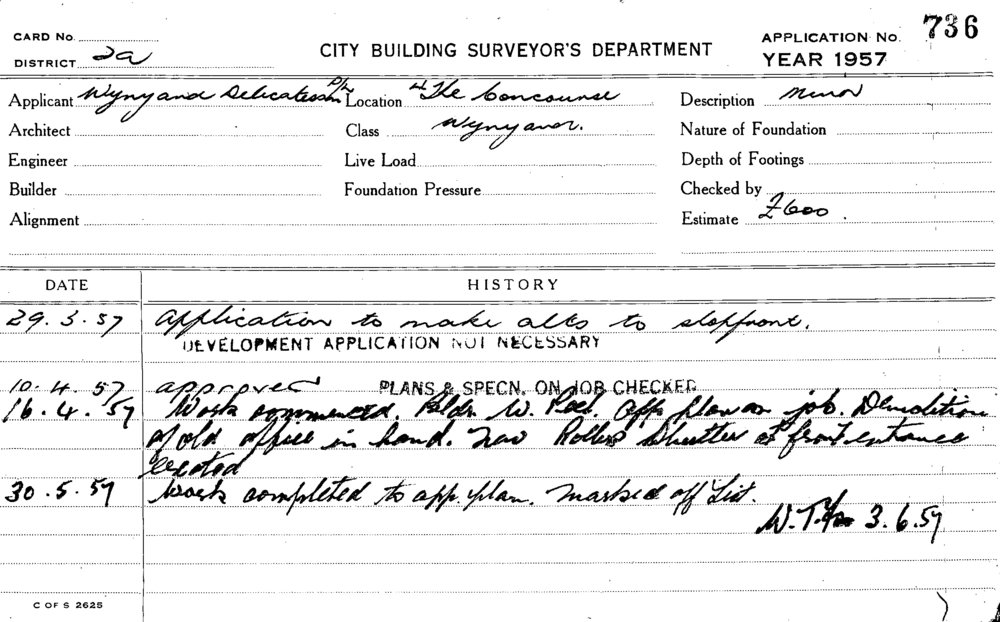 CARD No.
DISTRICT 2a
CITY BUILDING SURVEYOR'S DEPARTMENT
APPLICATION No. 736
YEAR 1957
Applicant Wynyard Delicatessen P/L
Location 4 The Concourse
Description Minor
Architect
Class Wynyard.
Nature of Foundation
Engineer
Live Load
Depth of Footings
Builder
Foundation Pressure
Checked by
Alignment
Estimate £600.
DATE
HISTORY
29.3.57 Application to make alts to shopfront.
DEVELOPMENT APPLICATION NOT NECESSARY
10.4.57 approved PLANS & SPECN. ON JOB CHECKED
16.4.57 Work commenced. Bldr. W. App plan on job. Demolition
of old office in hand. New Roller Shutter at front entrance
erected
30.5.57 Work completed to app. plan. Marked off List.
W.T. 3.6.57
C OF S 2625